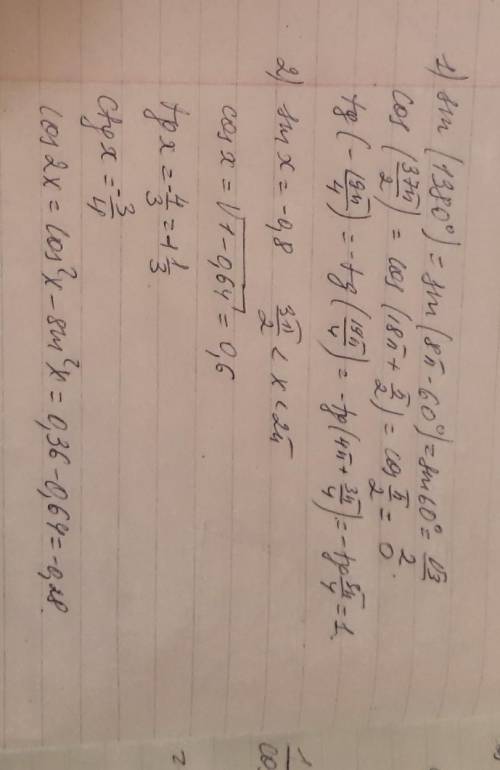 1) sin (1380°) = sin (8π - 60°) = sin 60° = √3/2.
cos (37π/2) = cos (18π + π/2) = cos π/2 = 0
tg (-19π/4) = -tg (19π/4) = -tg (4π + 3π/4) = -tg 3π/4 = 1.
2) sin x = -0,8 3π/2 < x < 2π
cos x = √1-0,64 = 0,6
tg x = -4/3 = -1 1/3
ctg x = -3/4
cos 2x = cos²x - sin²x = 0,36 - 0,64 = -0,28.